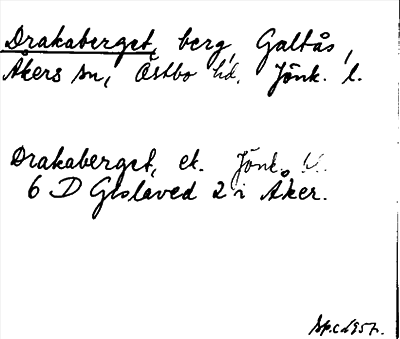 Drakaberget, berg, Galtås,
Åkers sn, Östbo hd. Jönk. l.
Drakaberget, ek. Jönk.
6 D Gislaved 2 i Åker.